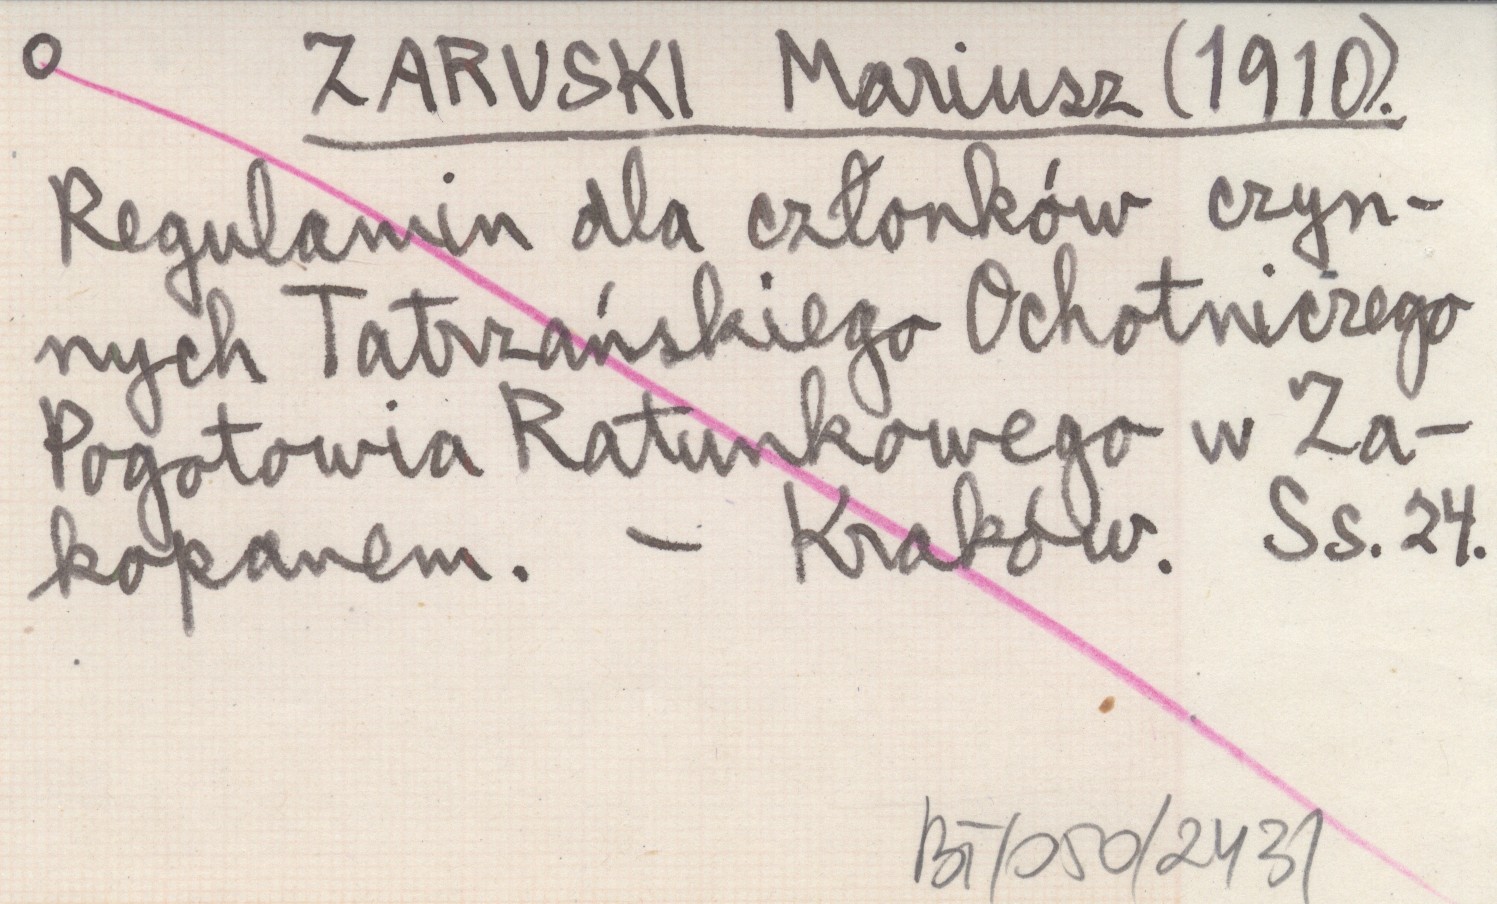 O ZARUSKI Mariusz (1910).
Regulamin dla członków czyn-
nych Tatrzańskiego Ochotniczego
Pogotowia Ratunkowego w Za-
kopanem. – Kraków. Ss. 24.
BT/050/2431